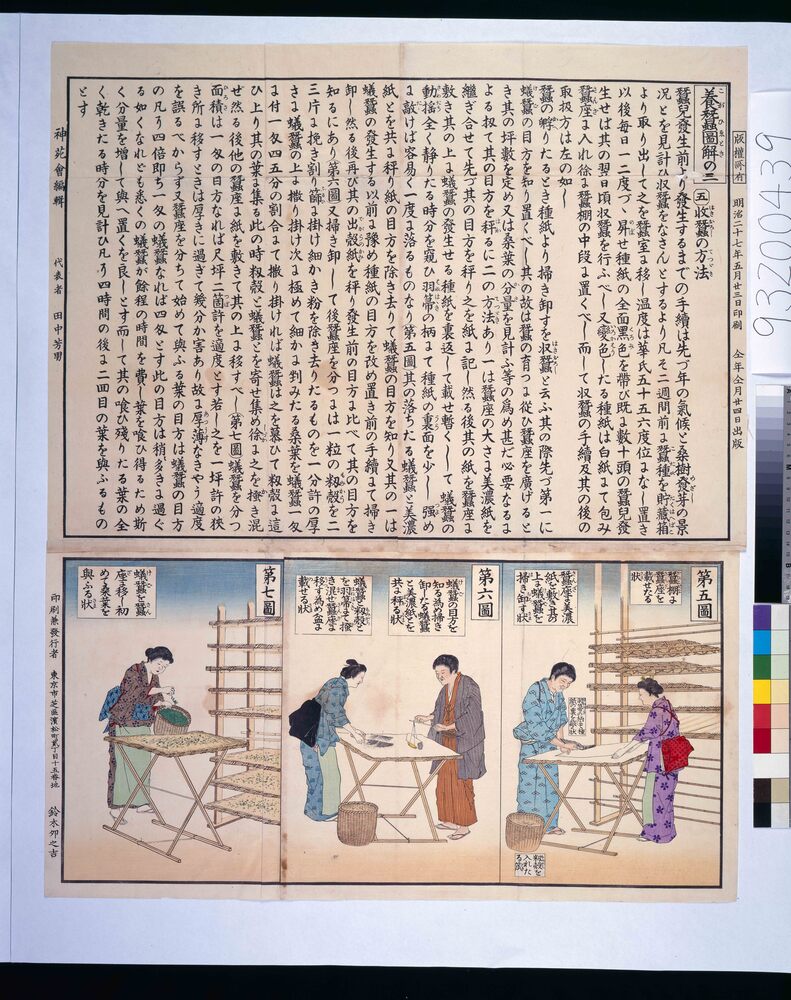 93Z00439
版權所有
明治二十七年五月廿三日印刷 仝年仝月廿四日出版
養蠶圖解の三
五 收蠶の方法
蠶兒發生前より發生するまでの手續は先づ年の氣候と桑樹發芽の景
況とを見計ひ收蠶をなさんとするより凡そ二週間前に蠶種を貯藏箱
より取り出して之を蠶室に移し温度は華氏五十五六度位になし置き
以後毎日一二度づゝ昇せ種紙の全面黑色を帶び既に數十頭の蠶兒發
生せば其の翌日頃収蠶を行ふべし又變色したる種紙は白紙にて包み
蠶座に入れ徐に蠶棚の中段に置くべし而して収蠶の手續及其の後の
取扱方は左の如し
蠶の孵りたるとき種紙より掃き卸すを収蠶と云ふ其の際先づ第一に
蟻蠶の目方を知り置くべし其の故は蠶の育つに從ひ蠶座を廣げると
き其の坪數を定め又は桑葉の分量を見計ふ等の爲め甚だ必要なるに
よる扨て其の目方を秤るに二の方法あり一は蠶座の大さに美濃紙を
繼ぎ合せて先づ其の目方を秤り之を紙に記し然る後其の紙を蠶座に
敷き其の上に蟻蠶の發生せる種紙を裏返して載せ暫くして蟻蠶の
動搖全く靜りたる時分を窺ひ羽箒の柄にて種紙の裏面を少し強め
に敲けば容易く一度に落るものなり第五圖其の落ちたる蟻蠶と美濃
紙とを共に秤り紙の目方を除き去りて蟻蠶の目方を知り又其の一は
蟻蠶の發生する以前に豫め種紙の目方を改め置き前の手續にて掃き
卸し然る後再び其の出殼紙を秤り發生前の目方に比べて其の目方を
知るにあり第六圖又掃き卸して後蠶座を分つには一粒の籾殼を二
三片に挽き割り篩に掛け細かき粉を除き去りたるものを一分許の厚
さに蟻蠶の上に撒り掛け次に極めて細かに剉みたる桑葉を蟻蠶一匁
に付一匁四五分の割合にて撒り掛ければ蟻蠶は之を慕ひて籾殼に這
ひ上り其の葉に集る此の時籾殼と蟻蠶とを寄せ集め徐に之を搔き混
ぜ然る後他の蠶座に紙を敷きて其の上に移すべし第七圖蟻蠶を分つ
面積は一匁の目方なれば尺坪二箇許を適度とす若し之を一坪許の狹
き所に移すときは厚きに過ぎて幾分か害あり故に厚薄なきやう適度
を誤るべからず又蠶座を分ちて始めて與ふる葉の目方は蟻蠶の目方
の凡そ四倍即ち一匁の蟻蠶なれば四匁とす此の目方は稍多きに過ぐ
る如くなれども悉くの蟻蠶が餘程の時間を費し葉を喰ひ得るため斯
く分量を增して與へ置くを良しとす而して其の喰ひ殘りたる葉の全
く乾きたる時分を見計ひ凡そ四時間の後に二回目の葉を與ふるもの
とす
神苑會編輯 代表者 田中芳男
第五圖
蠶棚に
蠶座を
載せたる
狀
蠶座に美濃
紙を敷き其の
上に蟻蠶を
掃き卸す狀
籾殼を
入れた
る笊
第六圖
蟻蠶の目方を
知る爲め掃き
卸したる蟻蠶
と美濃紙とを
共に秤る狀
蟻蠶に籾殼と
を羽箒にて搔
き混ぜ蠶座に
移す爲め盆に
載せる狀
第七圖
蟻蠶を蠶
座に移し初
めて桑葉を
與ふる狀
印刷兼發行者 東京市芝區濱松町貳丁目十五番地 鈴木夘之吉